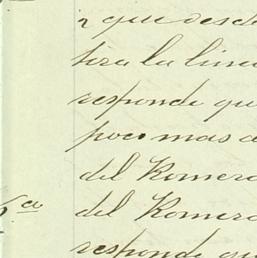 y que desde
tira la linea
responde que
poco mas a
del Romero
6ª del Romero
responde que